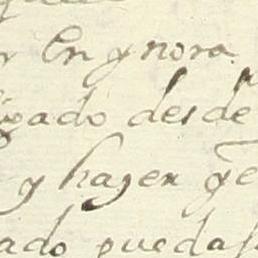 En ynora
gado desde
y hazen qe
ado puedas